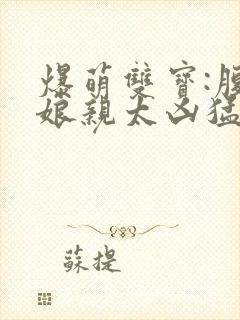 爆萌雙寶:腹
娘親太凶猛
蘇提